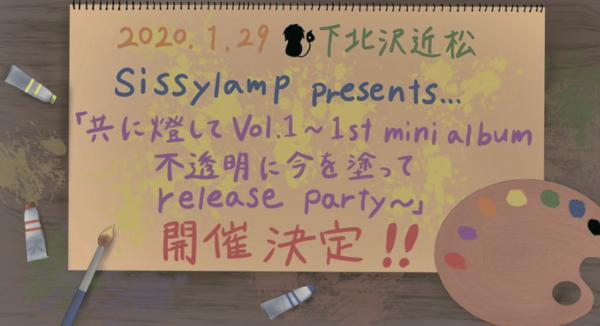 2020.1.29 下北沢近松
Sissylamp presents...
「共に燈してVol.1～1st mini album
不透明に今を塗って
release party～」
開催決定!!